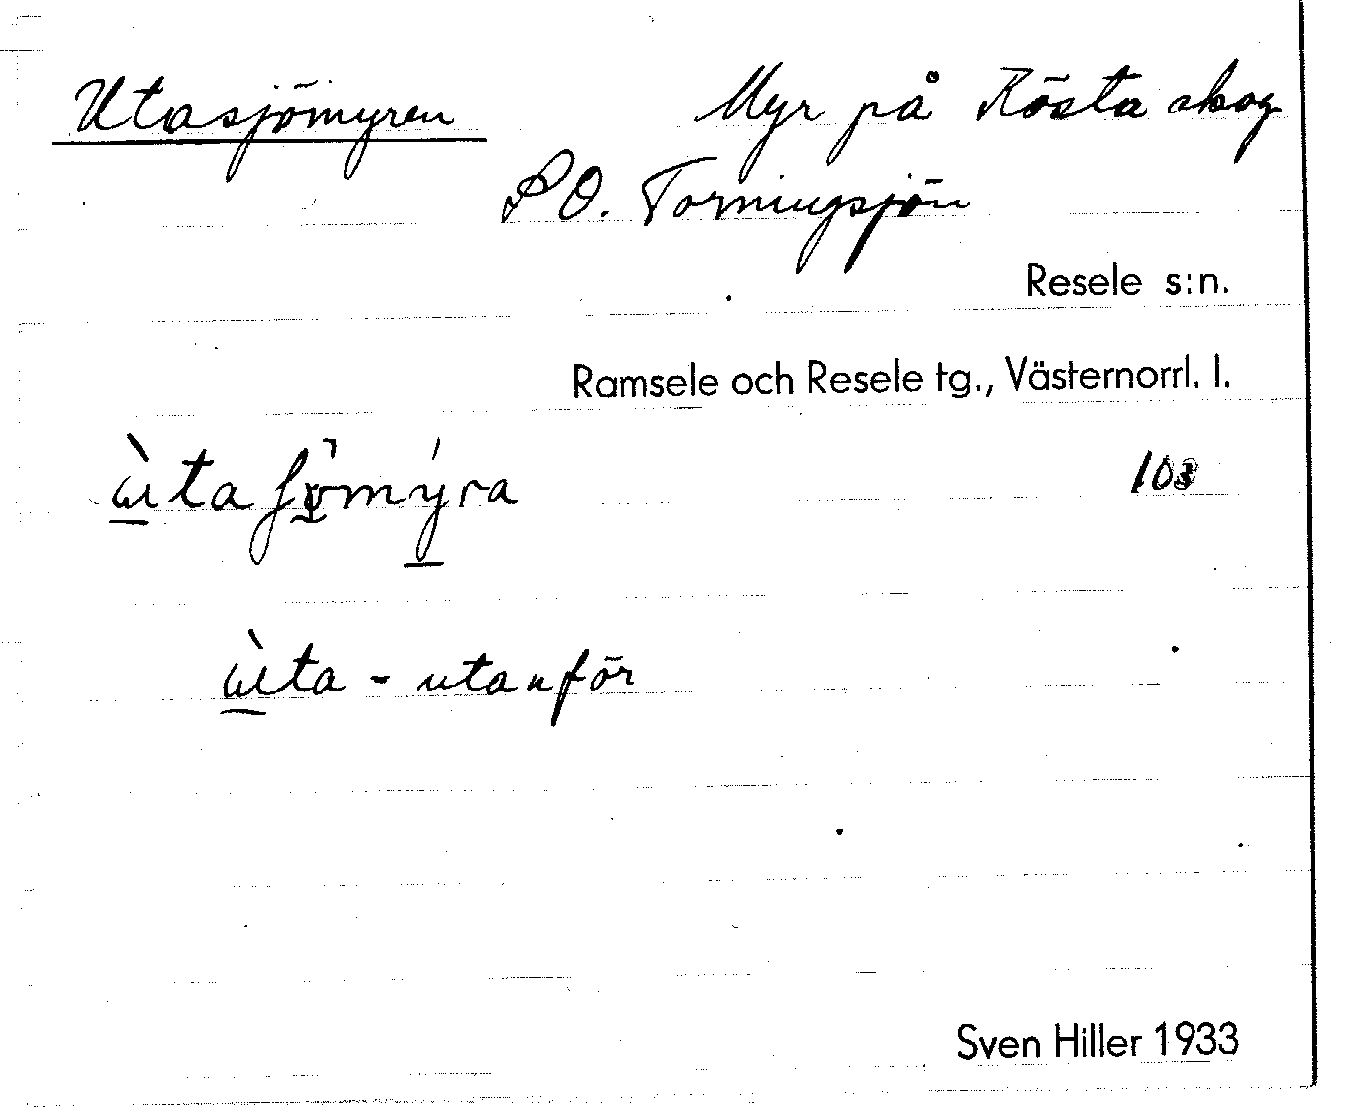 Utasjömyren Myr på Rösta skog
SO. Torningsjön
Resele s:n.
Ramsele och Resele tg., Västernorrl. l.
ùta 103
ùta - utanför
Sven Hiller 1933